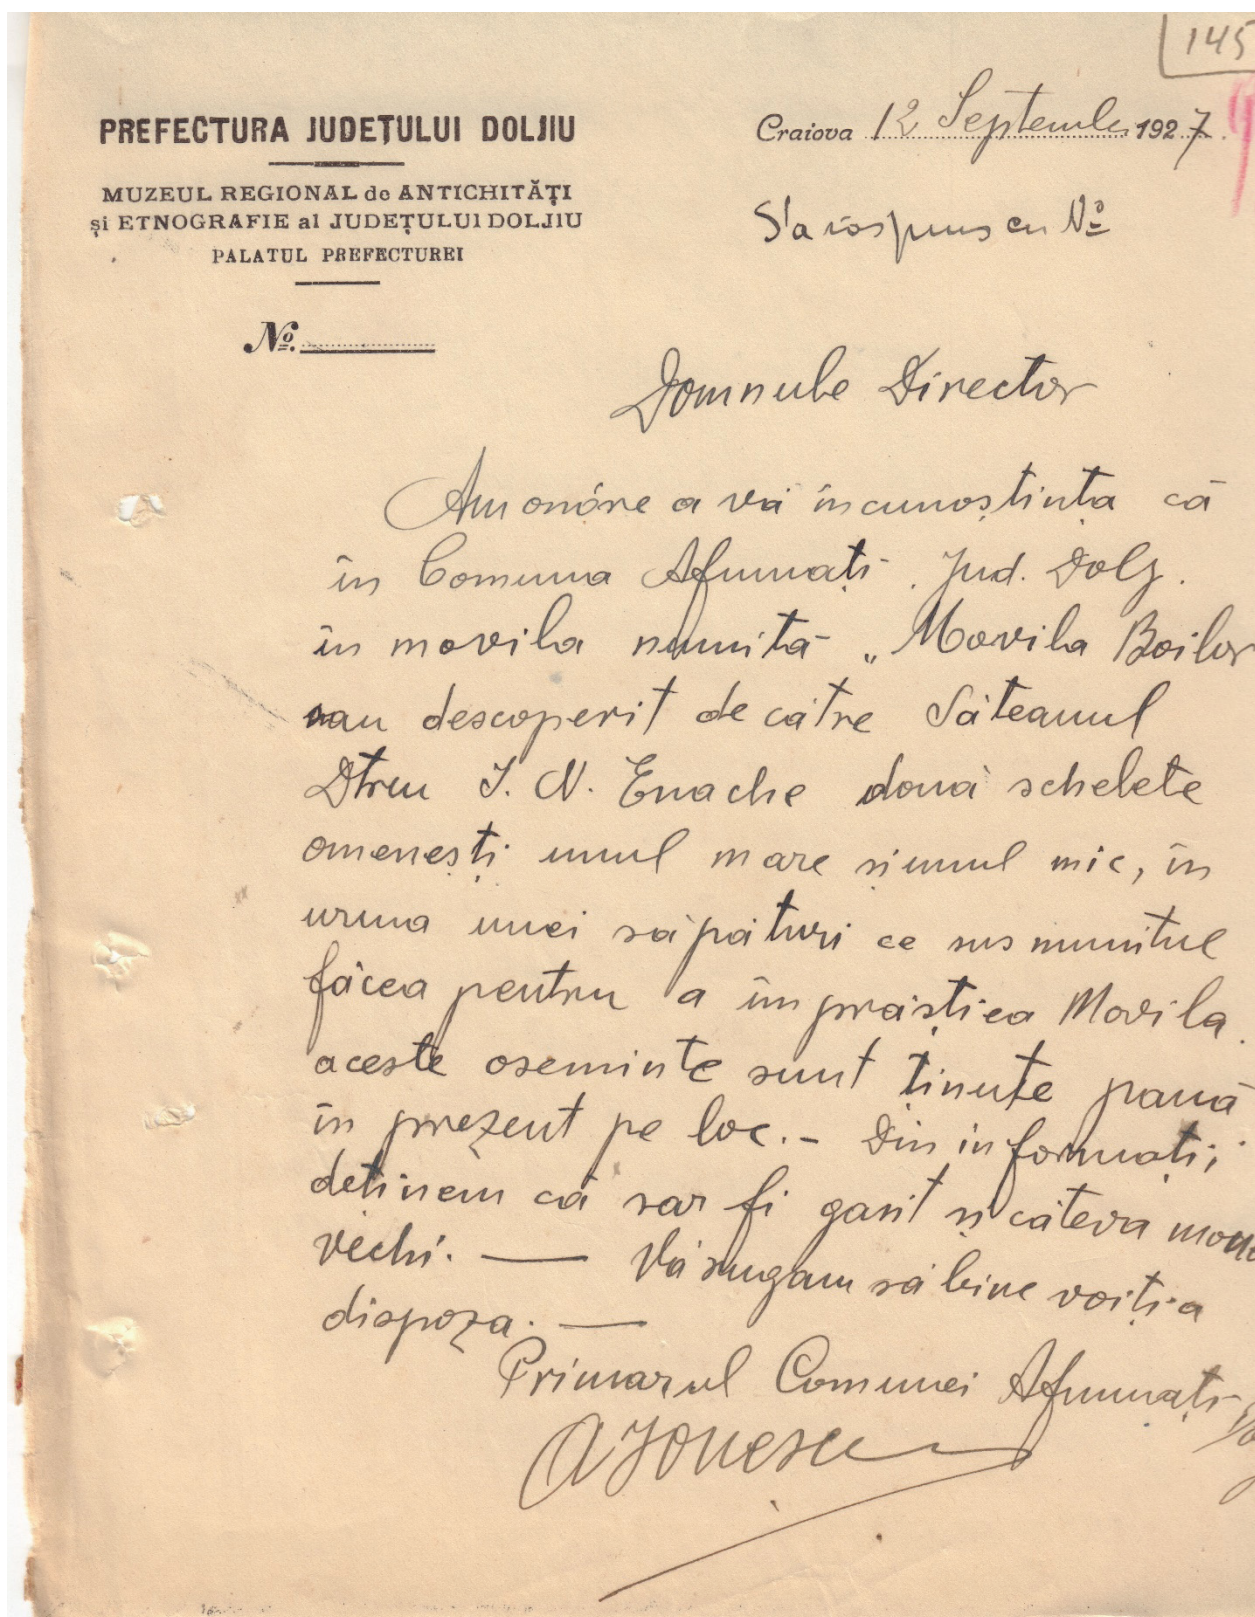 145
PREFECTURA JUDEȚULUI DOLJIU
Craiova 12 Septembre 1927
MUZEUL REGIONAL de ANTICHITĂȚI
și ETNOGRAFIE al JUDEȚULUI DOLJIU
PALATUL PREFECTUREI
S'a răspuns cu Nº
Nº.
Domnule Director
Am onóre a vă incunoștința că
în Comuna Afumați. Jud. Dolj.
în movila numită „Movila Boilor
sau descoperit de către Săteanul
Dtru I. N. Enache două schelete
omenești unul mare și unul mic, în
urma unei săpături ce susnumitul
făcea pentru a împrăștiea Movila.
aceste oseminte sunt ținute pană
în prezent pe loc.- Din informații
deținem că sar fi gasit și câteva
vechi. — Vă rugam să bine voiți a
dispoza. —
Primarul Comunei Afumați
A Ionescu